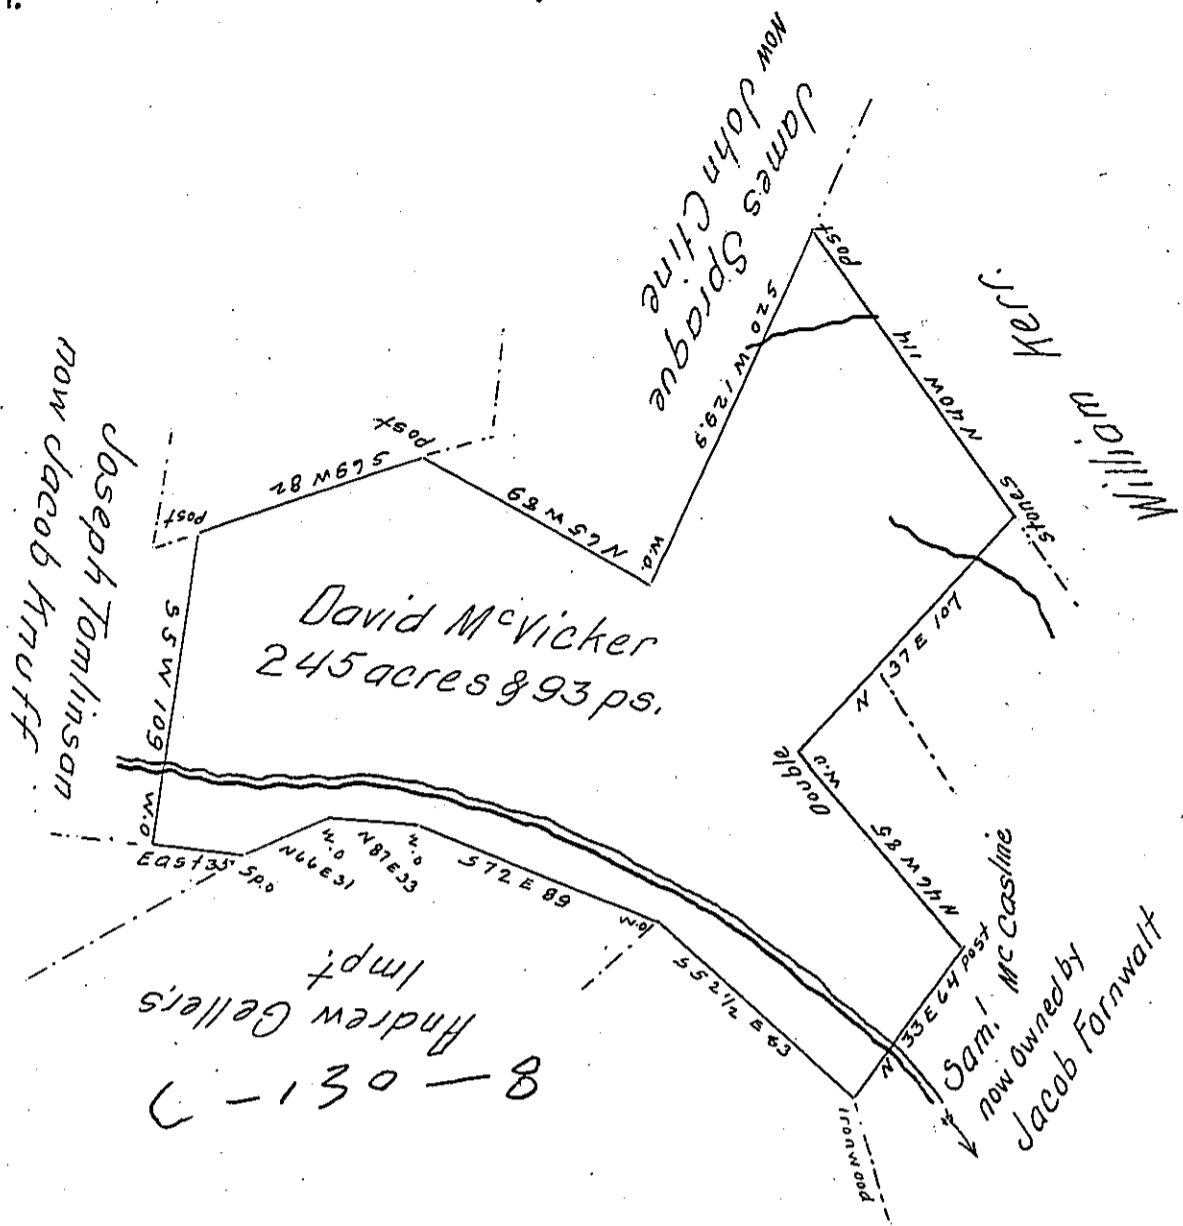 Now John Cline
James Sprague
William Kerr.
post
N40W 114
stones
S20W 129.9
W.O.
N65W 89
post
S69W 82
post
Joseph Tomlinson
now Jacob Knuff
S5W 109
W.O
David McVicker
245 acres & 93 ps.
N 37E 107
Double
W.O
N46W 85
post
N 33E 64
Sam.l McCasline
now owned by
Jacob Fornwalt
East 35
Sp.o
N66E31
W.O
N87E33
W.O
S72E89
W.O
S52 1/2 E 83
ironwood
Andrew Gellers
Impt.